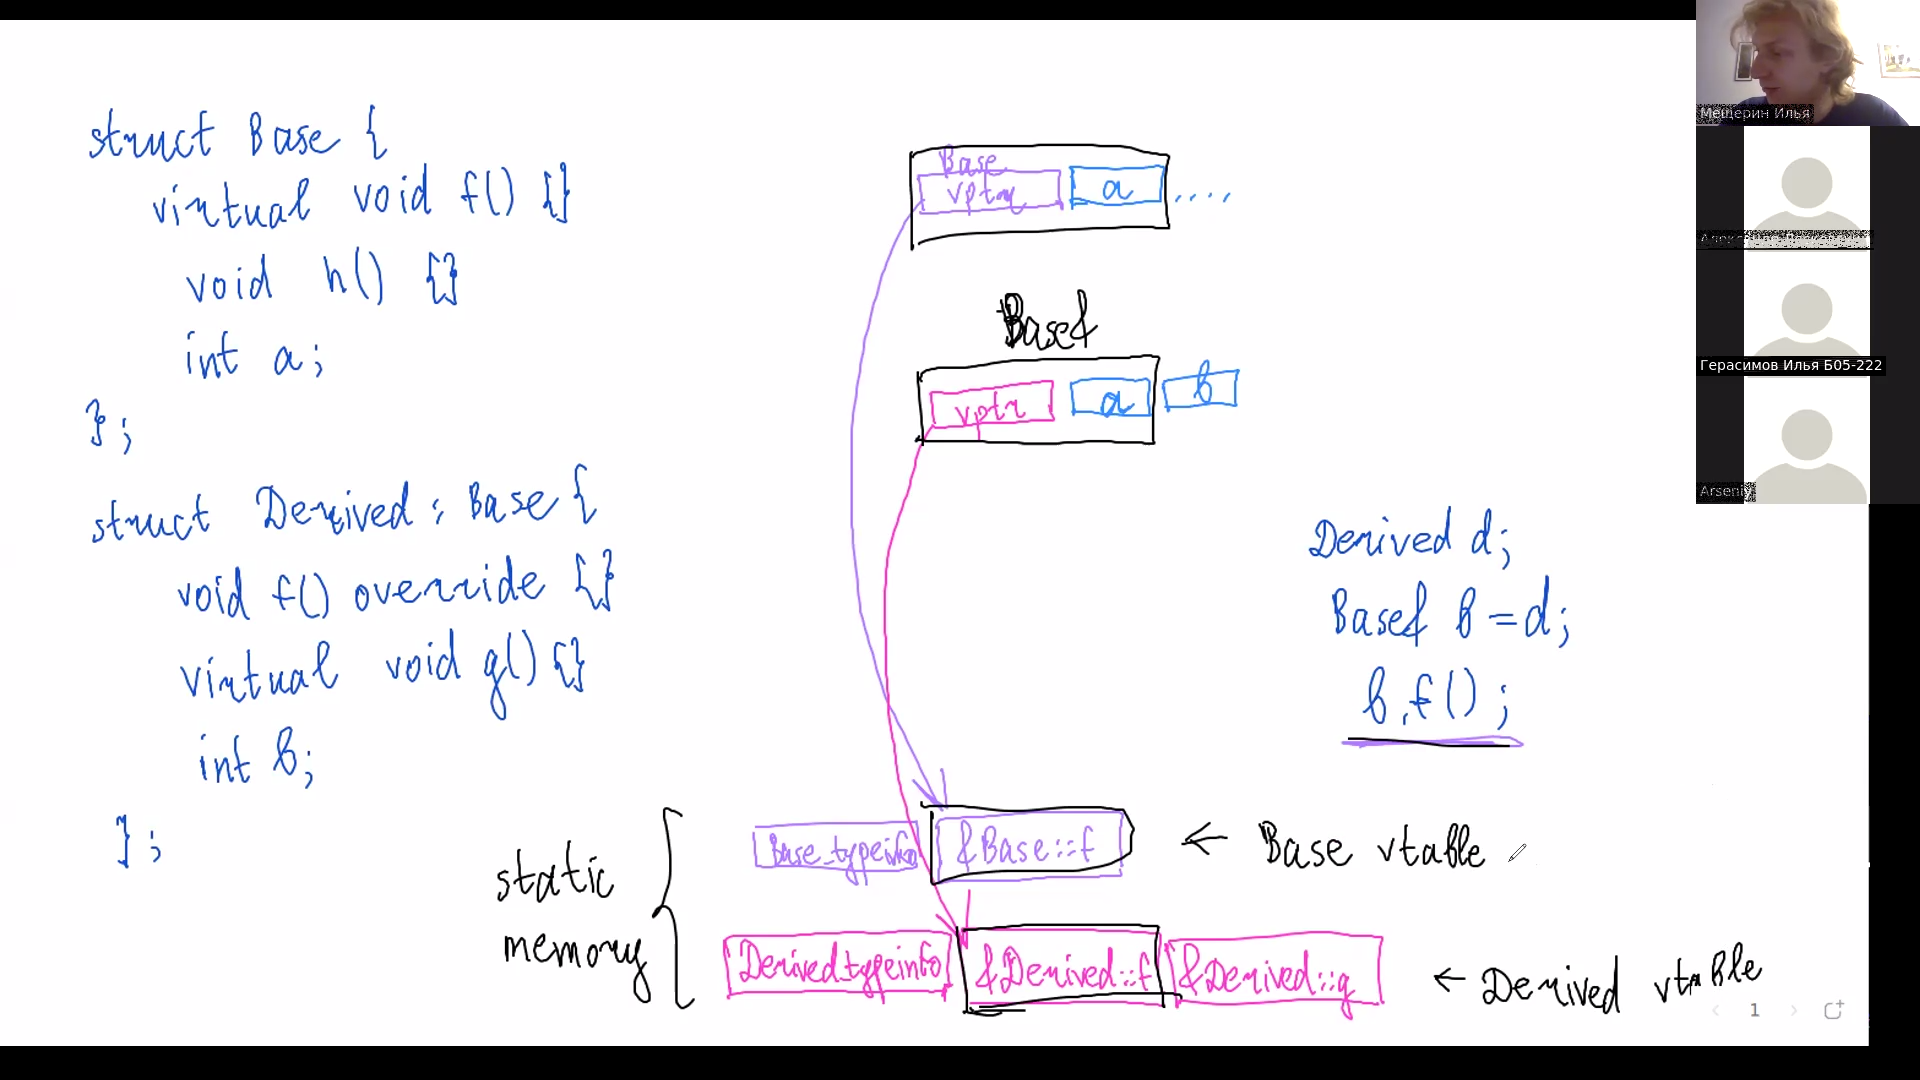 struct Base {
virtual void f() {}
void h() {}
int a;
};
struct Derived : Base {
void f() override {}
virtual void g() {}
int b;
};
Base
vptr a ....
Base&
vptr a b
Derived d;
Base& b = d;
b.f();
static memory
Base_typeinfo &Base::f ← Base vtable
Derived_typeinfo &Derived::f &Derived::g ← Derived vtable
1
Мещерин Илья
Герасимов Илья Б05-222
Arseniy